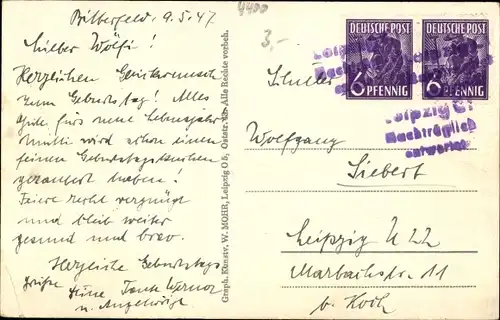 Bitterfeld, 9.5.47
4400
3,-
Lieber Wölfi!
Herzlichen Glückwunsch
zum Geburtstag! Alles
Gute fürs neue Lebensjahr!
Mutti wird schon einen
feinen Geburtstagskuchen
gezaubert haben!
Feiere recht vergnügt
und bleib weiter
gesund und brav.
Herzliche Geburtstags
grüße Deine Tante Werner
u. Angehörige
Graph. Kunstv. W. MOHR, Leipzig O 5, Oststr. Alle Rechte vorbeh.
DEUTSCHE POST
6 PFENNIG
DEUTSCHE POST
6 PFENNIG
Leipzig C1
Nachträglich
entwertet
Schüler
Wolfgang
Siebert
Leipzig N 22
Marbachstr. 11
b. Koch